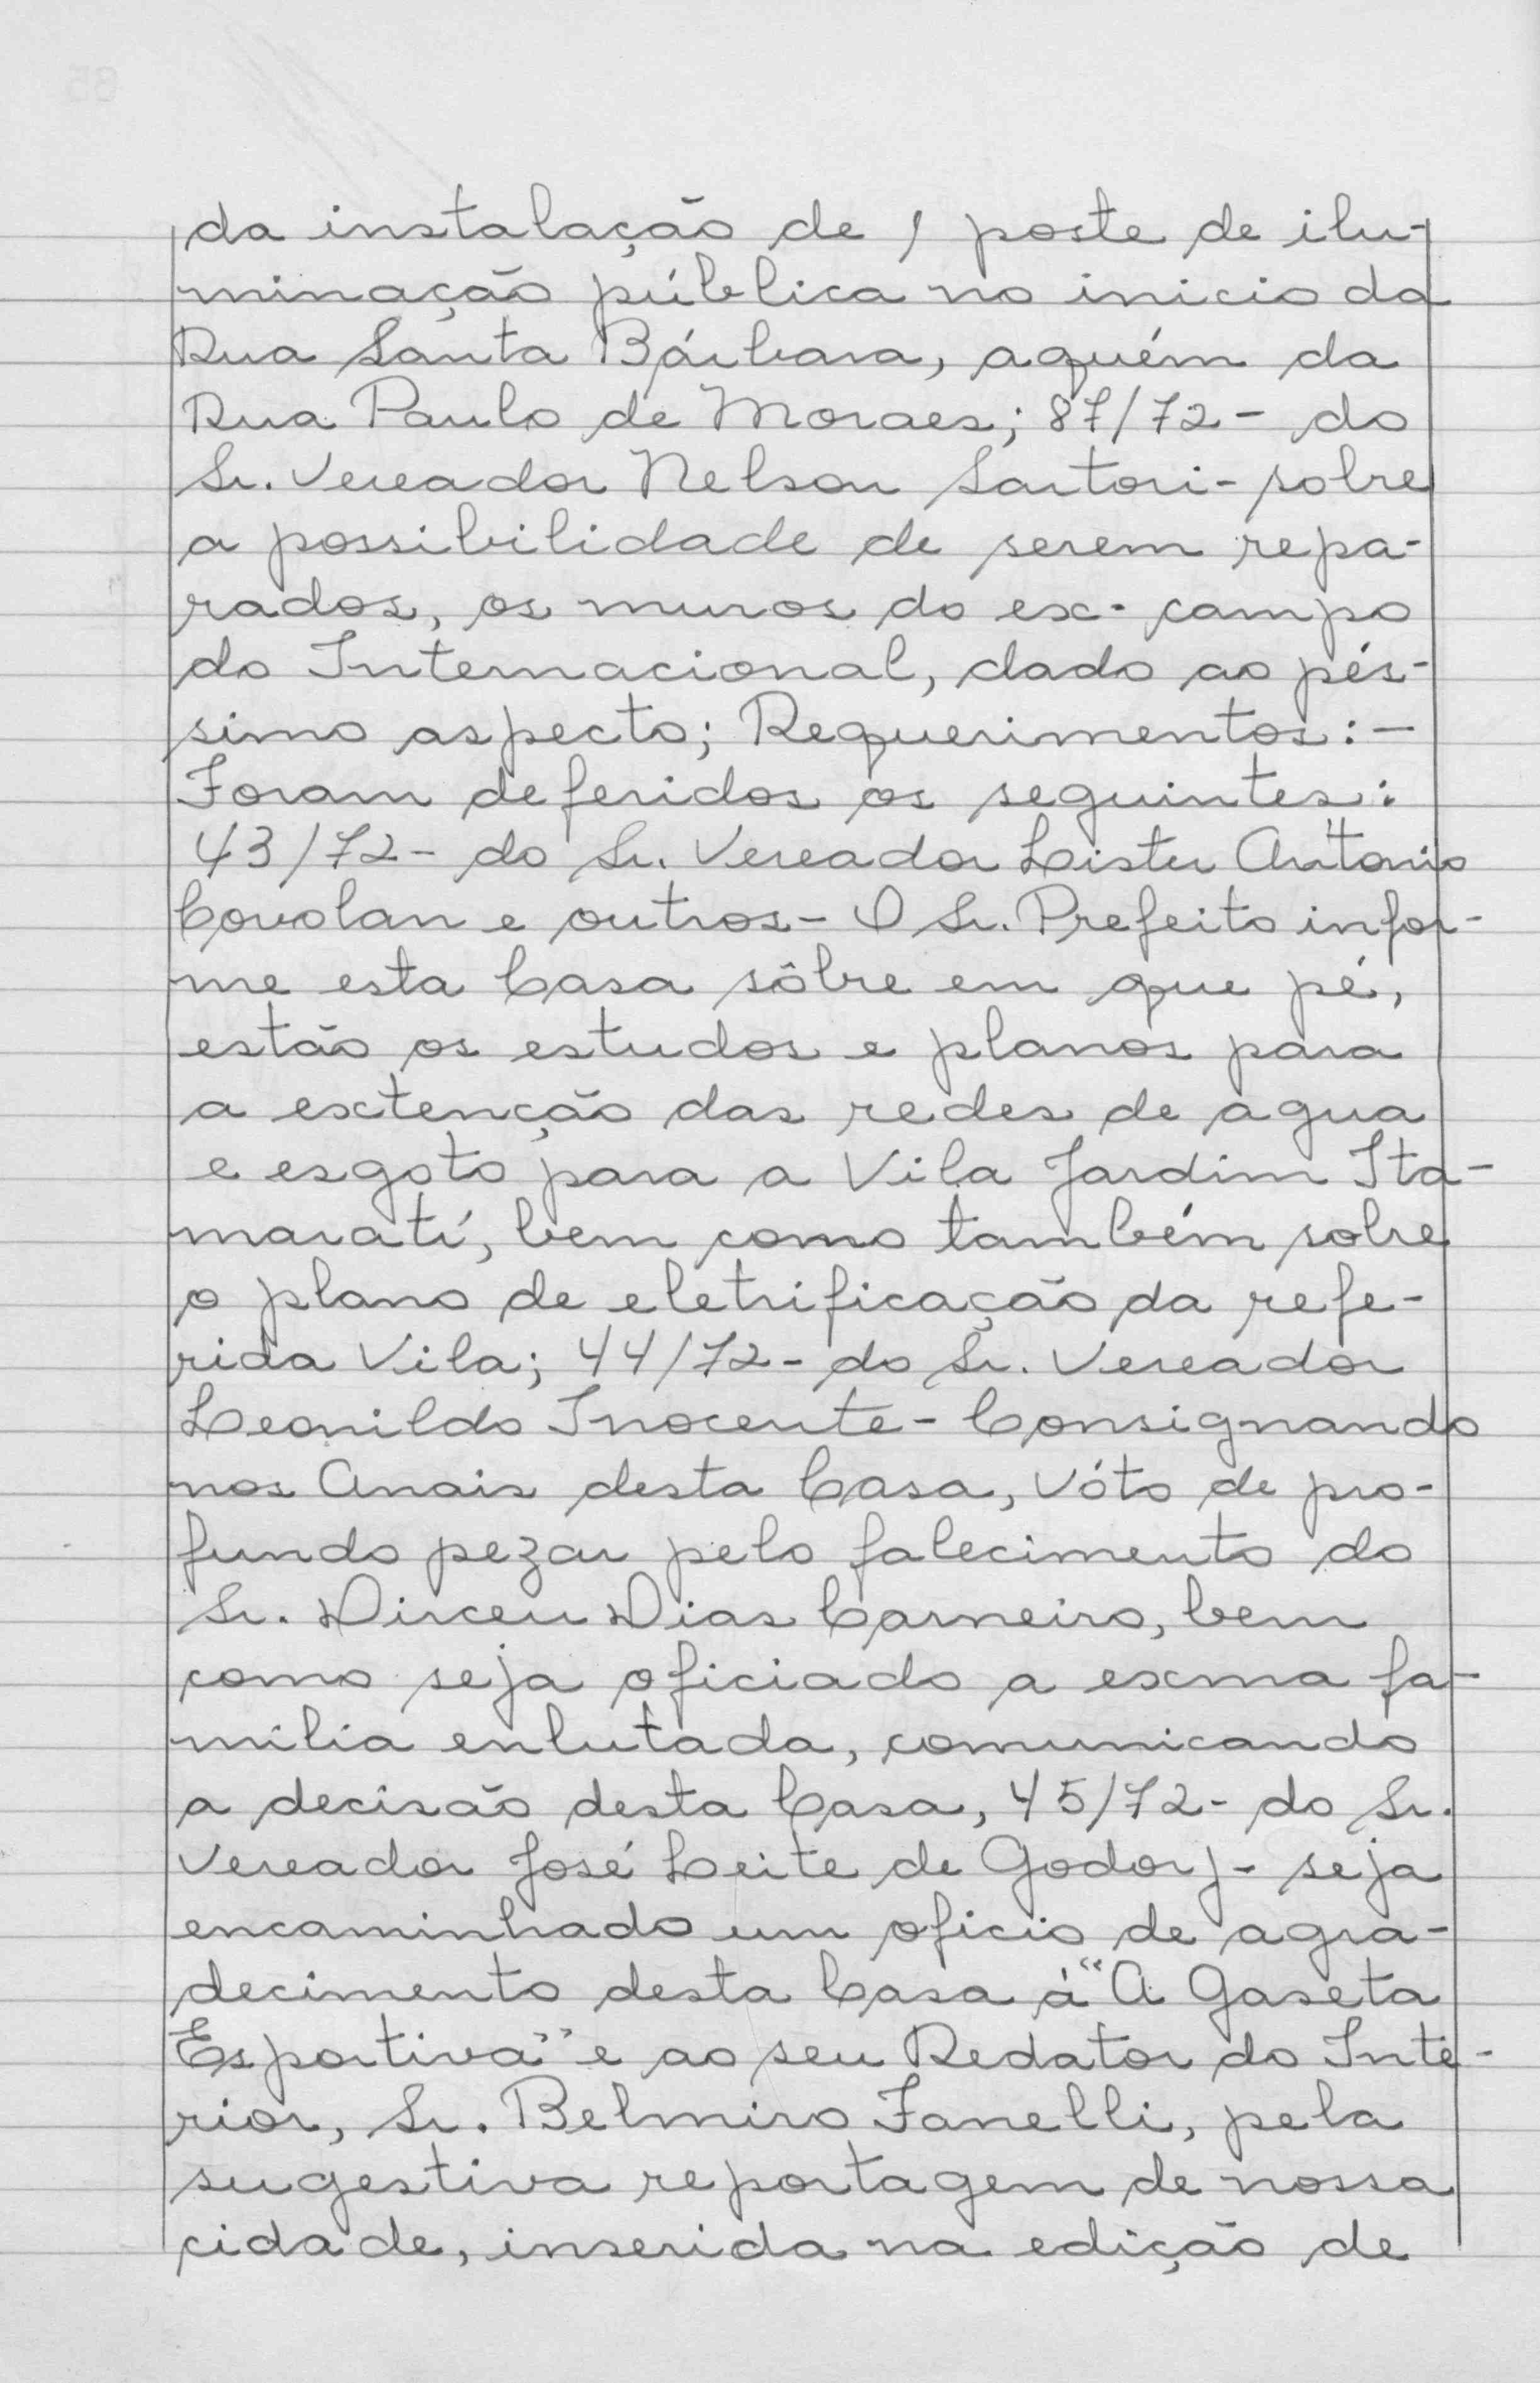 da instalação de 1 poste de ilu-
minação pública no inicio da
Rua Santa Bárbara, aquém da
Rua Paulo de Moraes; 87/72 - do
Sr. Vereador Nelson Sartori - sobre
a possibilidade de serem repa-
rados, os muros do ex-campo
do Internacional, dado ao pés-
simo aspecto; Requerimentos: -
Foram deferidos os seguintes:
43/72 - do Sr. Vereador Lister Antonio
Covolan e outros - O Sr. Prefeito infor-
me esta Casa sôbre em que pé,
estão os estudos e planos para
a extenção das redes de agua
e esgoto para a Vila Jardim Ita-
maratí, bem como também sobre
o plano de eletrificação da refe-
rida Vila; 44/72 - do Sr. Vereador
Leonildo Inocente - Consignando
nos Anais desta Casa, vóto de pro-
fundo pezar pelo falecimento do
Sr. Dirceu Dias Carneiro, bem
como seja oficiado a exma fa-
milia enlutada, comunicando
a decisão desta Casa, 45/72 - do Sr.
Vereador José Leite de Godoy - seja
encaminhado um oficio de agra-
decimento desta Casa á "A Gaseta
Esportiva" e ao seu Redator do Inte-
rior, Sr. Belmiro Fanelli, pela
sugestiva reportagem de nossa
cidade, inserida na edição de